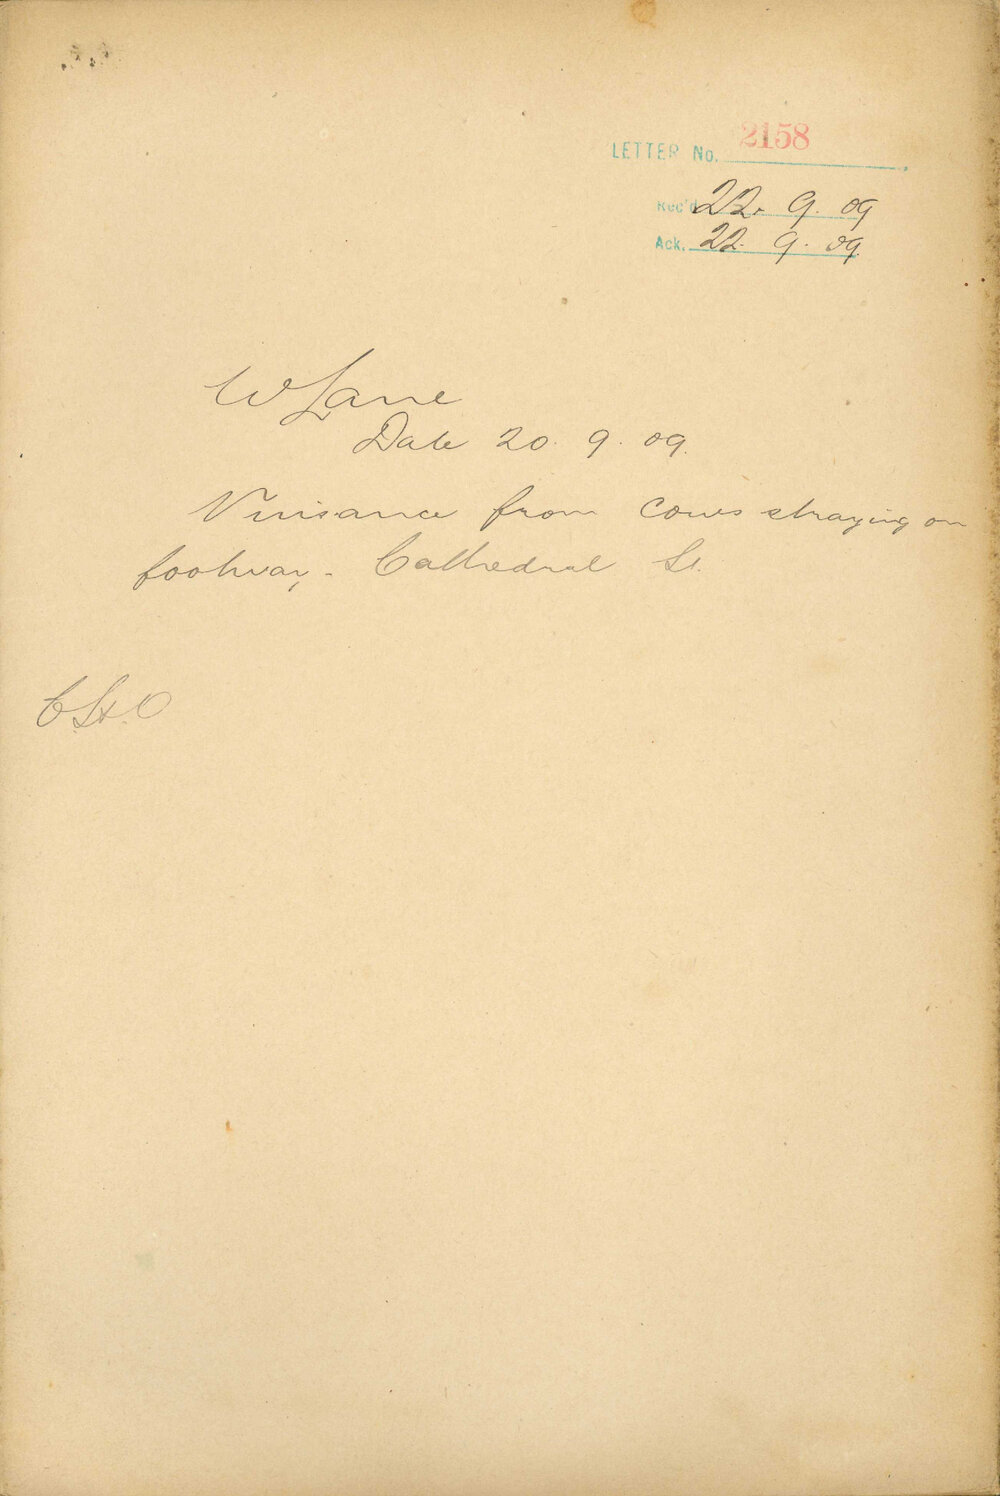 LETTER No. 2158
Rec'd 22. 9. 09
Ack. 22. 9. 09.
W Lane
Date 20. 9. 09.
Nuisance from cows straying on
footway - Cathedral St.
C St. O